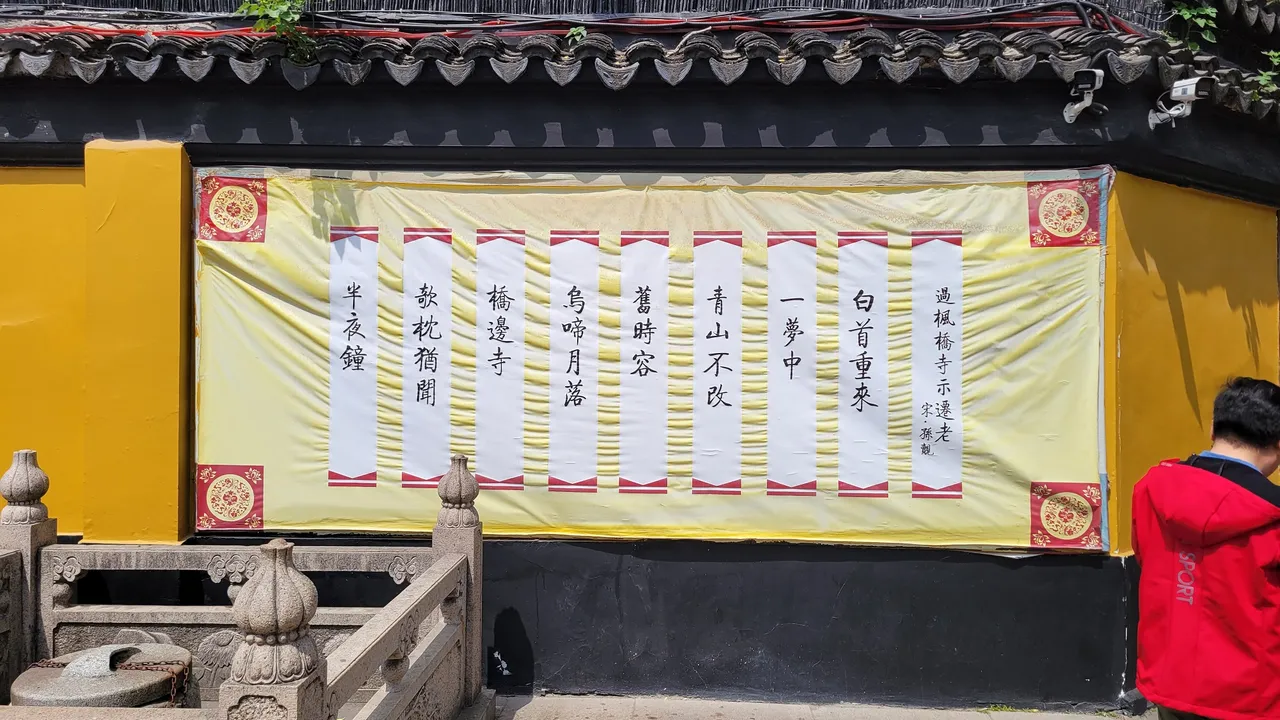 過楓橋寺示遷老
宋·孫覿
白首重來
一夢中
青山不改
舊時容
烏啼月落
橋邊寺
欹枕猶聞
半夜鐘
SPORT